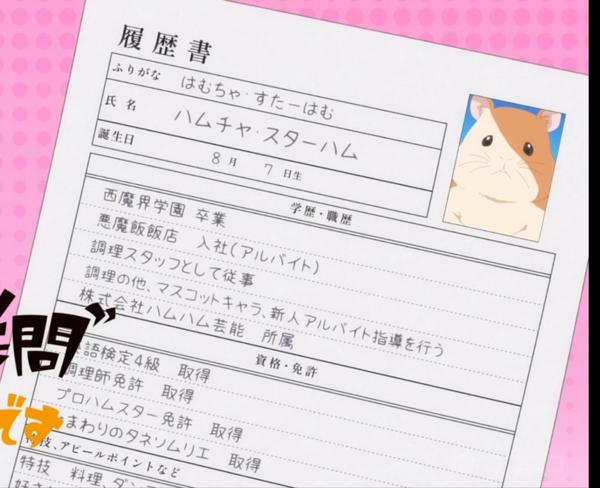 履歴書
ふりがな はむちゃ・すたーはむ
氏名 ハムチャ・スターハム
誕生日 8月 7日生
学歴・職歴
西魔界学園 卒業
悪魔飯飯店 入社(アルバイト)
調理スタッフとして従事
調理の他、マスコットキャラ、新人アルバイト指導を行う
株式会社ハムハム芸能 所属
資格・免許
語検定4級 取得
調理師免許 取得
プロハムスター免許 取得
まわりのタネソムリエ 取得
技、アピールポイントなど
特技 料理、ダン
問
です